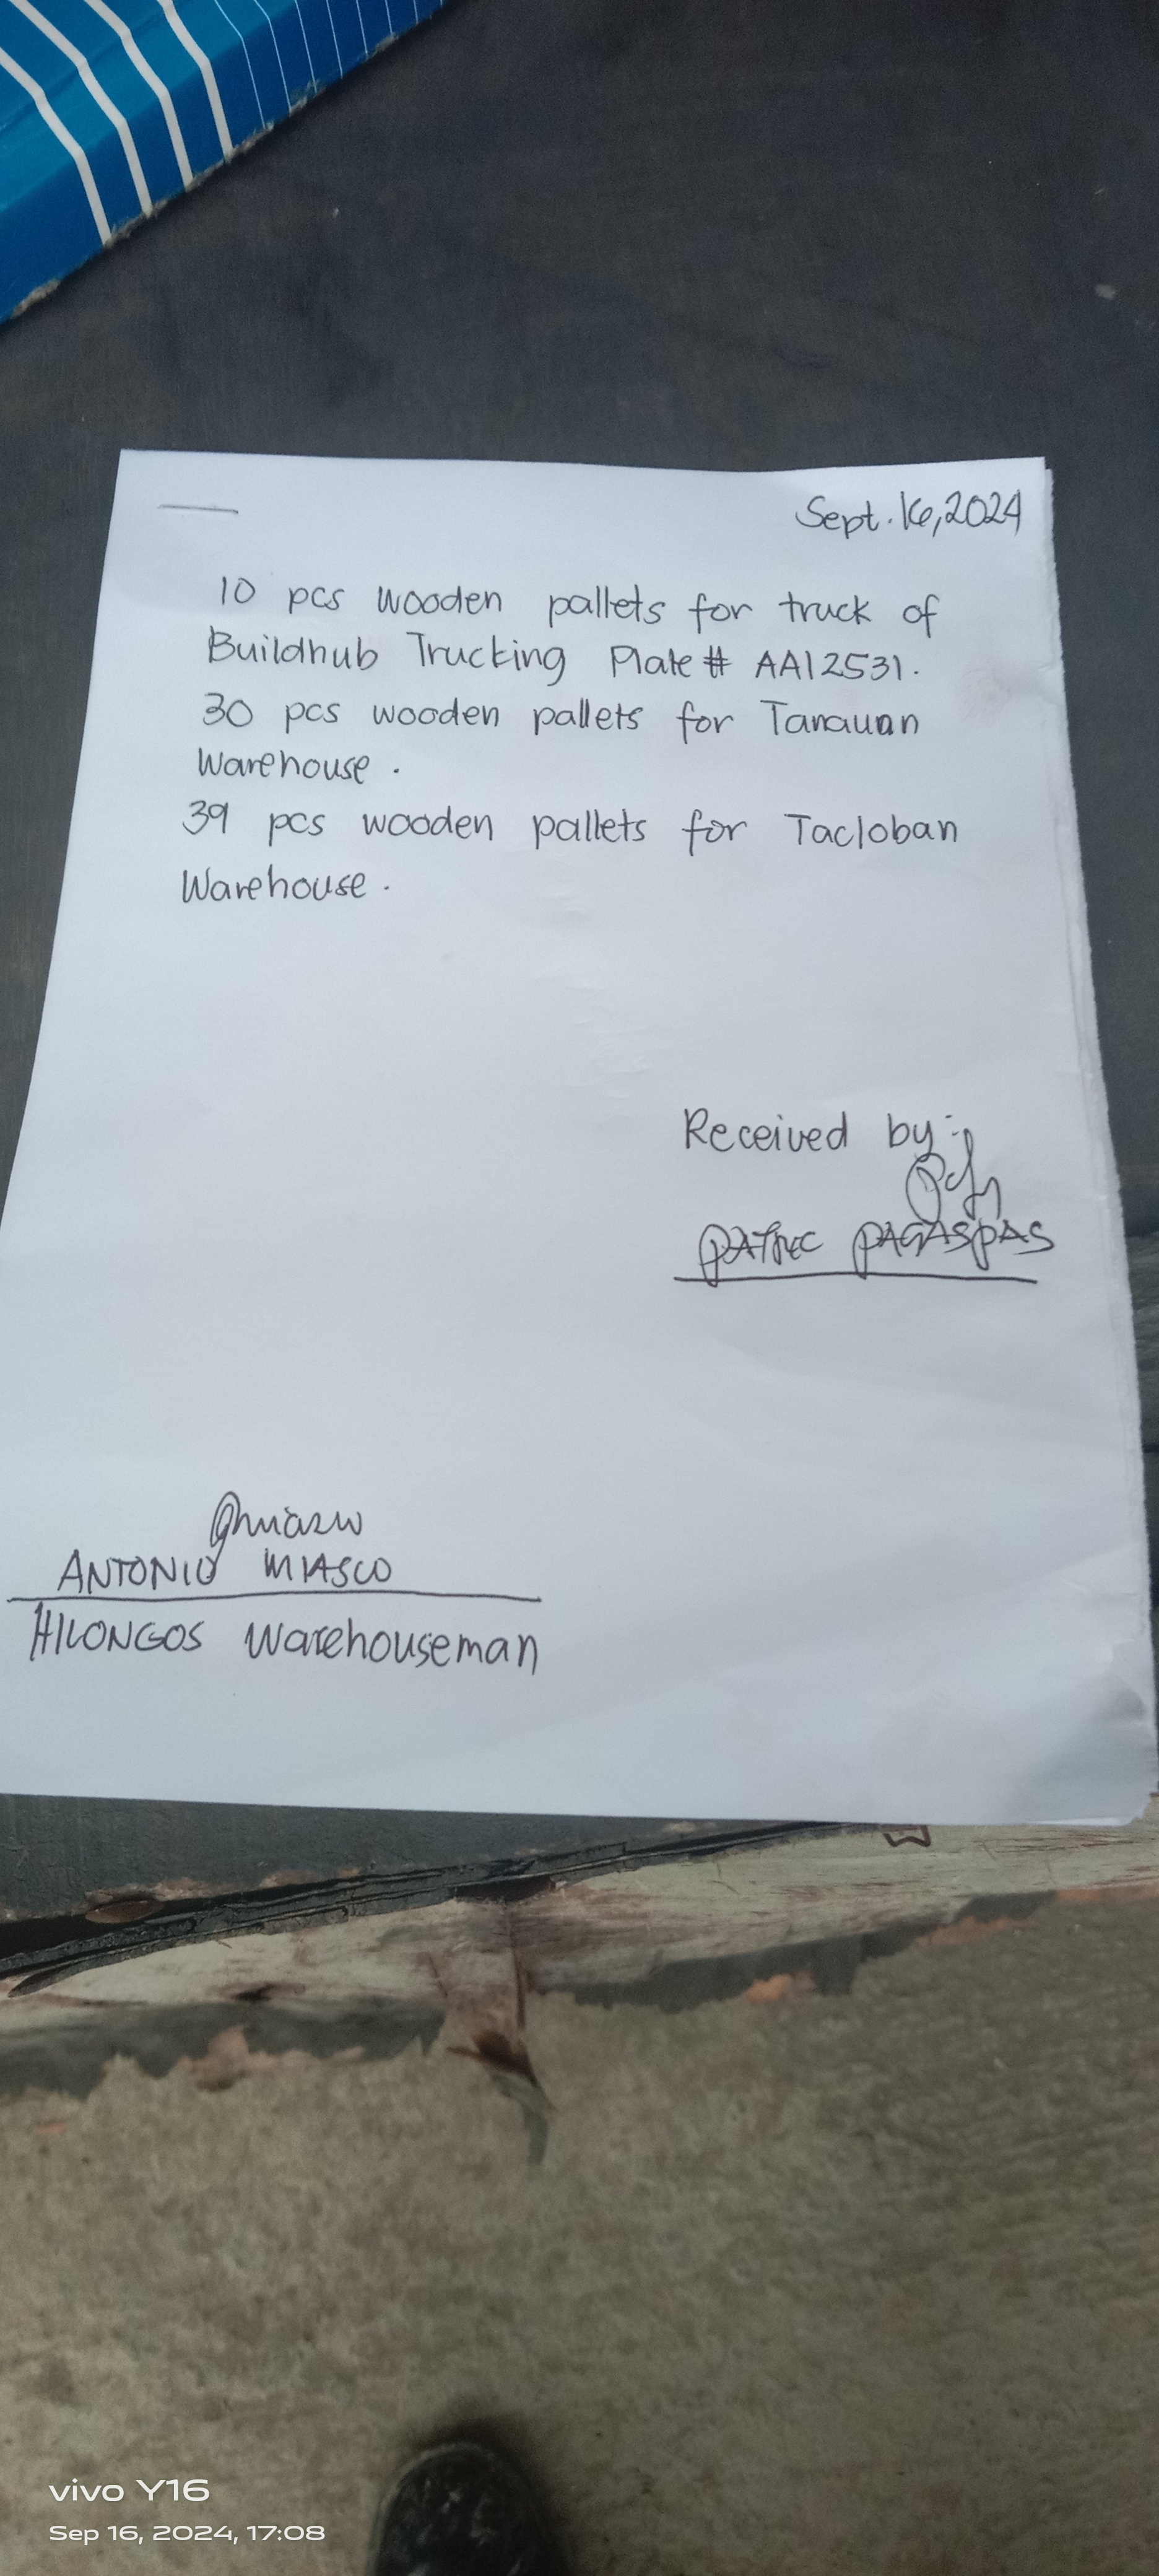 Sept. 16, 2024
10 pcs wooden pallets for truck of
Buildhub Trucking Plate # AAI 2531.
30 pcs wooden pallets for Tanauan
Warehouse.
39 pcs wooden pallets for Tacloban
Warehouse.
Received by:
PATREC PAGASPAS
ANTONIO MIASCO
HILONGOS Warehouseman
vivo Y16
Sep 16, 2024, 17:08